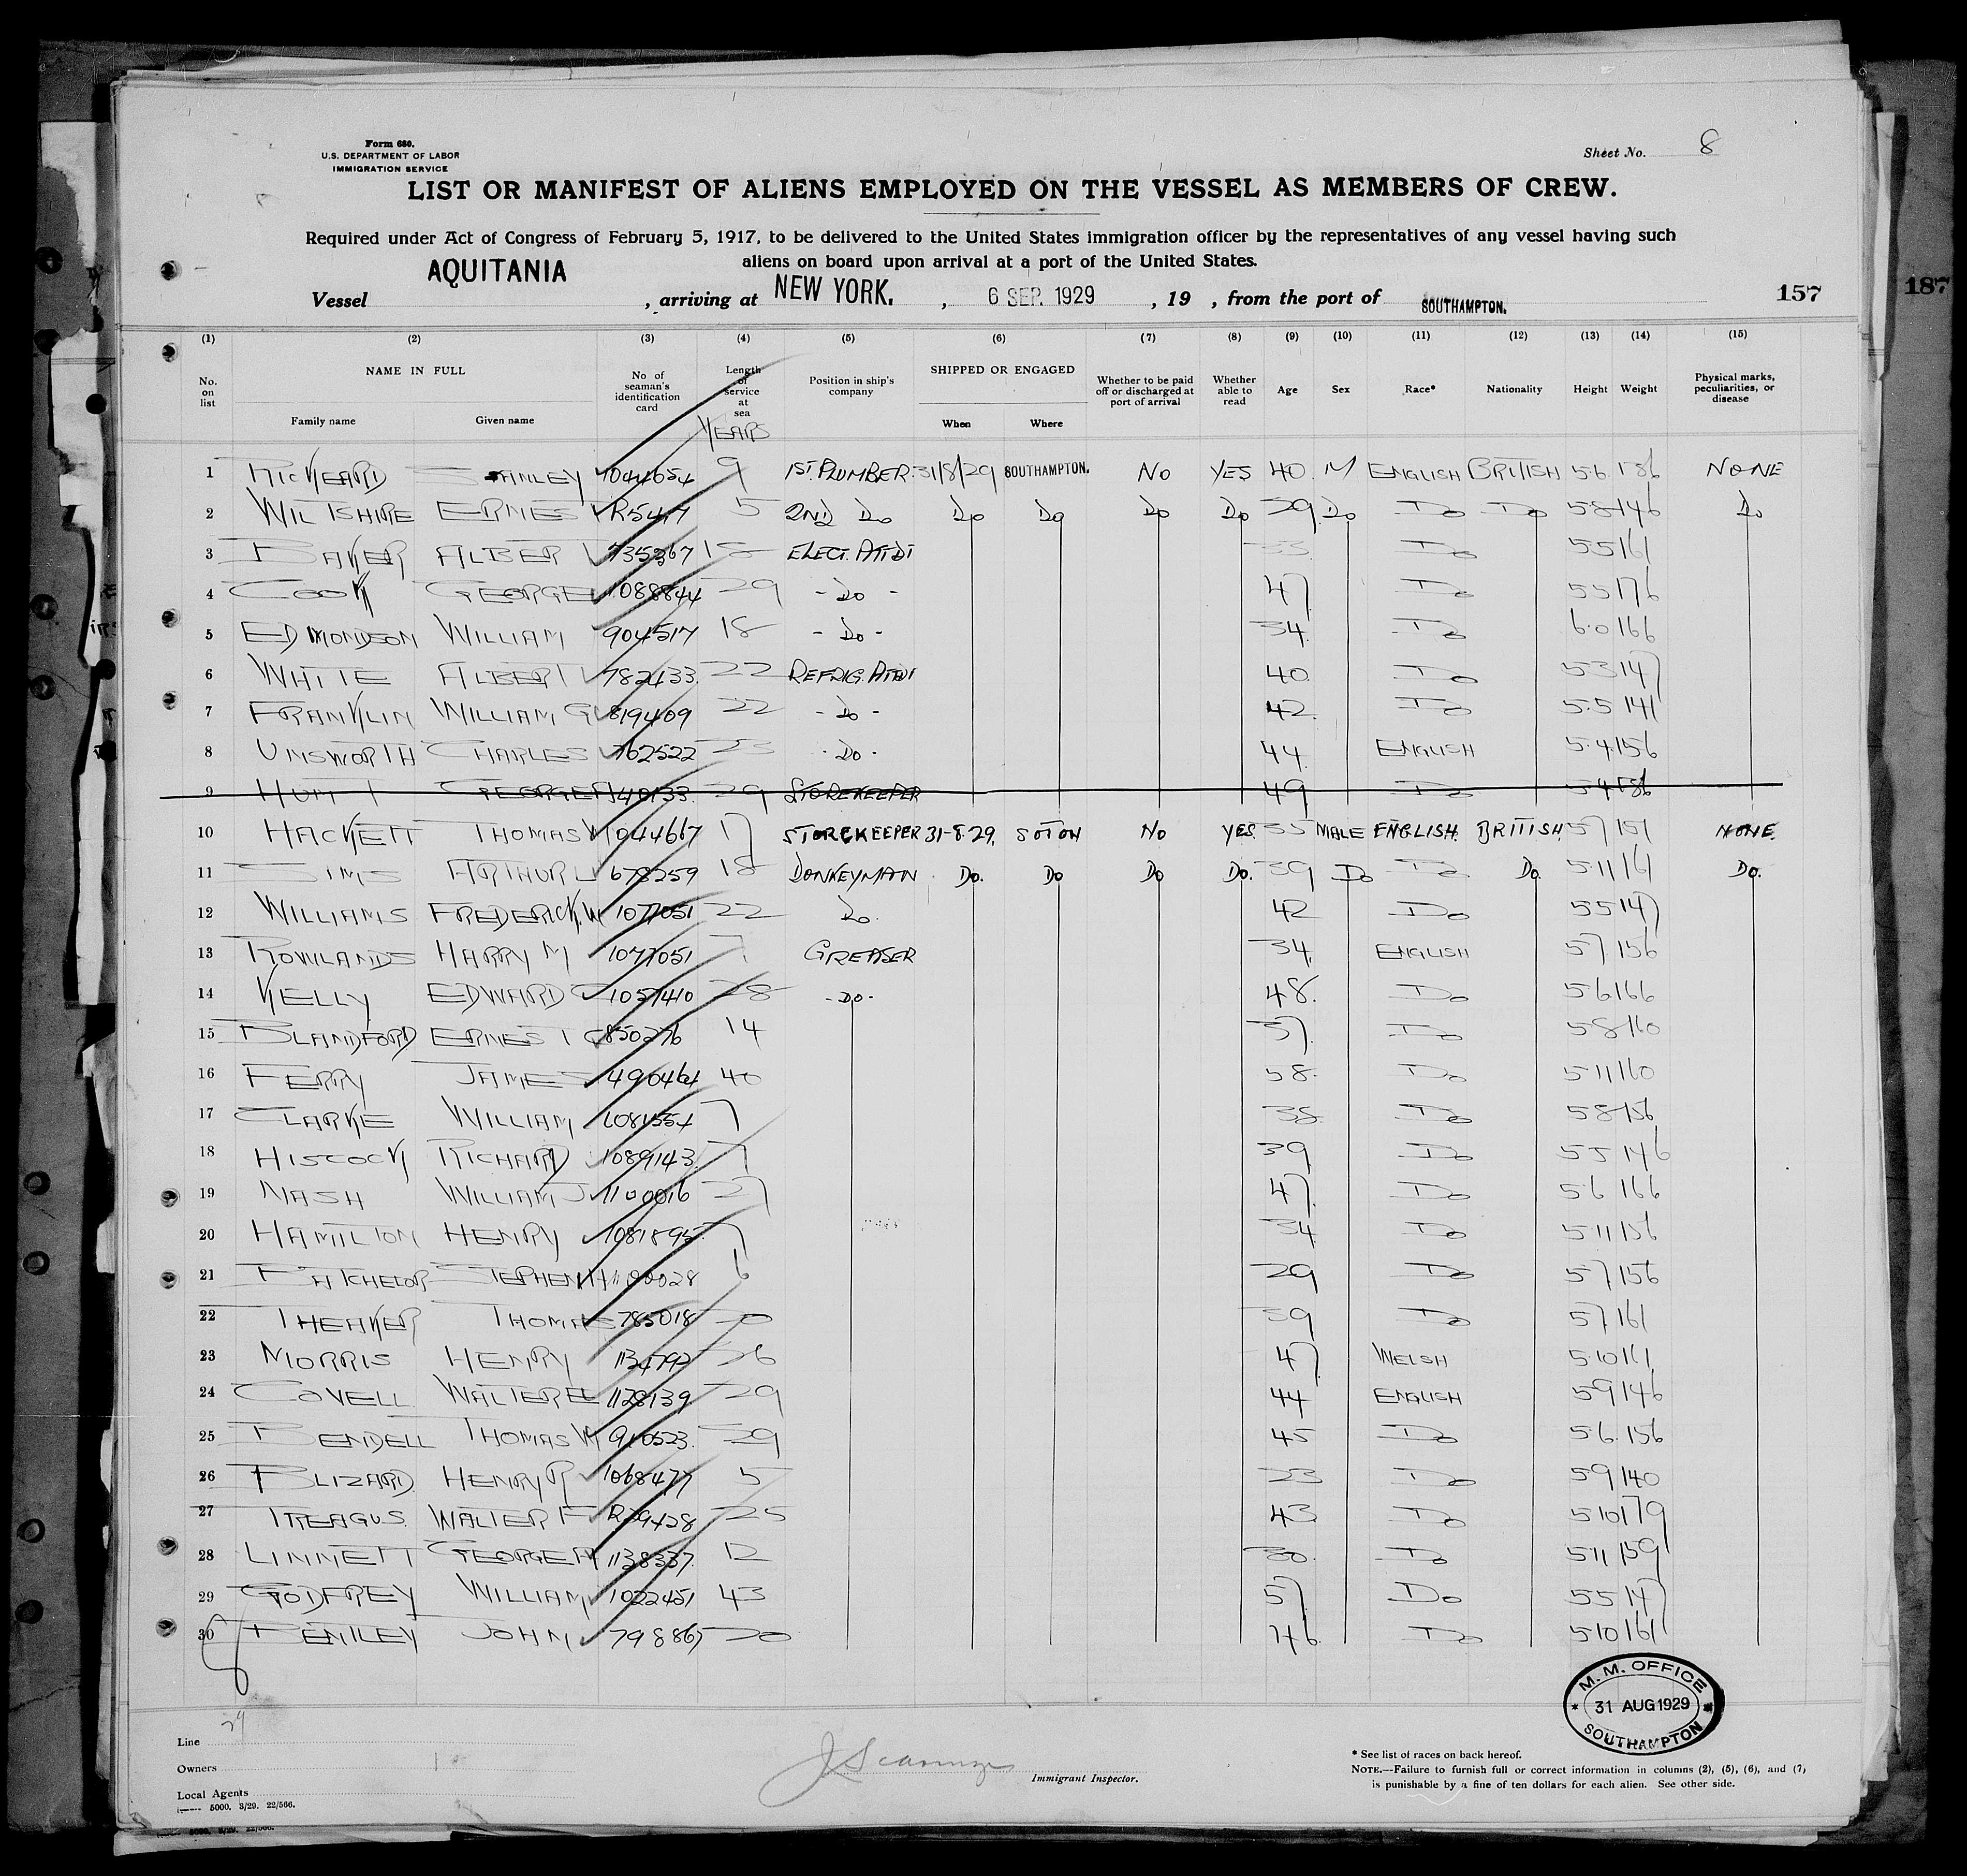 Form 680.
U.S. DEPARTMENT OF LABOR
IMMIGRATION SERVICE
Sheet No. 8
LIST OR MANIFEST OF ALIENS EMPLOYED ON THE VESSEL AS MEMBERS OF CREW.
Required under Act of Congress of February 5, 1917, to be delivered to the United States immigration officer by the representatives of any vessel having such
aliens on board upon arrival at a port of the United States.
Vessel AQUITANIA, arriving at NEW YORK., 6 SEP. 1929, 19 , from the port of SOUTHAMPTON. 157 187
(1) (2) (3) (4) (5) (6) (7) (8) (9) (10) (11) (12) (13) (14) (15)
No. on list NAME IN FULL Family name Given name No. of seaman's identification card Length of service at sea YEARS Position in ship's company SHIPPED OR ENGAGED When Where Whether to be paid off or discharged at port of arrival Whether able to read Age Sex Race* Nationality Height Weight Physical marks, peculiarities, or disease
1 RICKEARD STANLEY 1044654 9 1ST. PLUMBER. 31/8/29 SOUTHAMPTON. NO YES 40 M ENGLISH BRITISH 5.6 186 NONE
2 WILTSHIRE ERNEST R5417 5 2ND Do Do Do Do Do 39 Do Do Do 5 8 146 Do
3 BAKER ALBERT 735367 15 ELECT. ATTDT 33 Do 5.5 161
4 COOK GEORGE 1088844 29 - Do - 47 Do 5 5 176
5 EDMONDSON WILLIAM 904517 18 - Do - 34 Do 6.0 166
6 WHITE ALBERT 782433 22 REFRIG. ATTDT 40 Do 5 3 147
7 FRANKLIN WILLIAM G 819409 22 - Do - 42 Do 5.5 141
8 UNSWORTH CHARLES 762522 23 - Do - 44 ENGLISH 5.4 156
9 HUNT GEORGE 29 STOREKEEPER 49 Do 5 4 186
10 HACKETT THOMAS W 1044667 17 STOREKEEPER 31-8-29. SOTON NO YES. 35 MALE ENGLISH. BRITISH. 5 7 151 NONE.
11 SIMS ARTHUR L 678259 18 DONKEYMAN Do. Do Do Do. 39 Do Do Do. 5.11 161 Do.
12 WILLIAMS FREDERICK. W 1077051 22 Do. 42 Do 5 5 147
13 ROWLANDS HARRY M 1077051 7 GREASER 34 ENGLISH 5 7 156
14 KELLY EDWARD 1057410 28 - Do - 48. Do 5 6 166
15 BLANDFORD ERNEST G 850276 14 37 Do 5 8 160
16 FERRY JAMES 490464 40 58. Do 5 11 160
17 CLARKE WILLIAM 1081554 7 38 Do 5 8 156
18 HISCOCK RICHARD 1089143 7 39 Do 5 5 146
19 NASH WILLIAM J 1100016 27 47 Do 5 6 166
20 HAMILTON HENRY 1081895 7 34 Do 5 11 156
21 BATCHELOR STEPHEN H 1100028 6 29 Do 5 7 156
22 THEAKER THOMAS 785018 20 39 Do 5 7 161
23 MORRIS HENRY 1134792 26 47 WELSH 5.10 161
24 COVELL WALTER E 1128139 29 44 ENGLISH 5 9 146
25 BENDELL THOMAS W 910523 29 45 Do 5.6. 156
26 BLIZARD HENRY R 1068477 5 23 Do 5 9 140
27 TREAGUS WALTER F R39428 25 43 Do 5 10 179
28 LINNETT GEORGE A 1138337 12 30 Do 5 11 159
29 GODFREY WILLIAM 1022451 43 57 Do 5 5 147
30 BENTLEY JOHN 798865 20 46 Do 5 10 161
M. M. OFFICE
31 AUG 1929
SOUTHAMPTON
Line
Owners
Local Agents
5000. 3/29. 22/566.
Immigrant Inspector.
* See list of races on back hereof.
NOTE.—Failure to furnish full or correct information in columns (2), (5), (6), and (7)
is punishable by a fine of ten dollars for each alien. See other side.